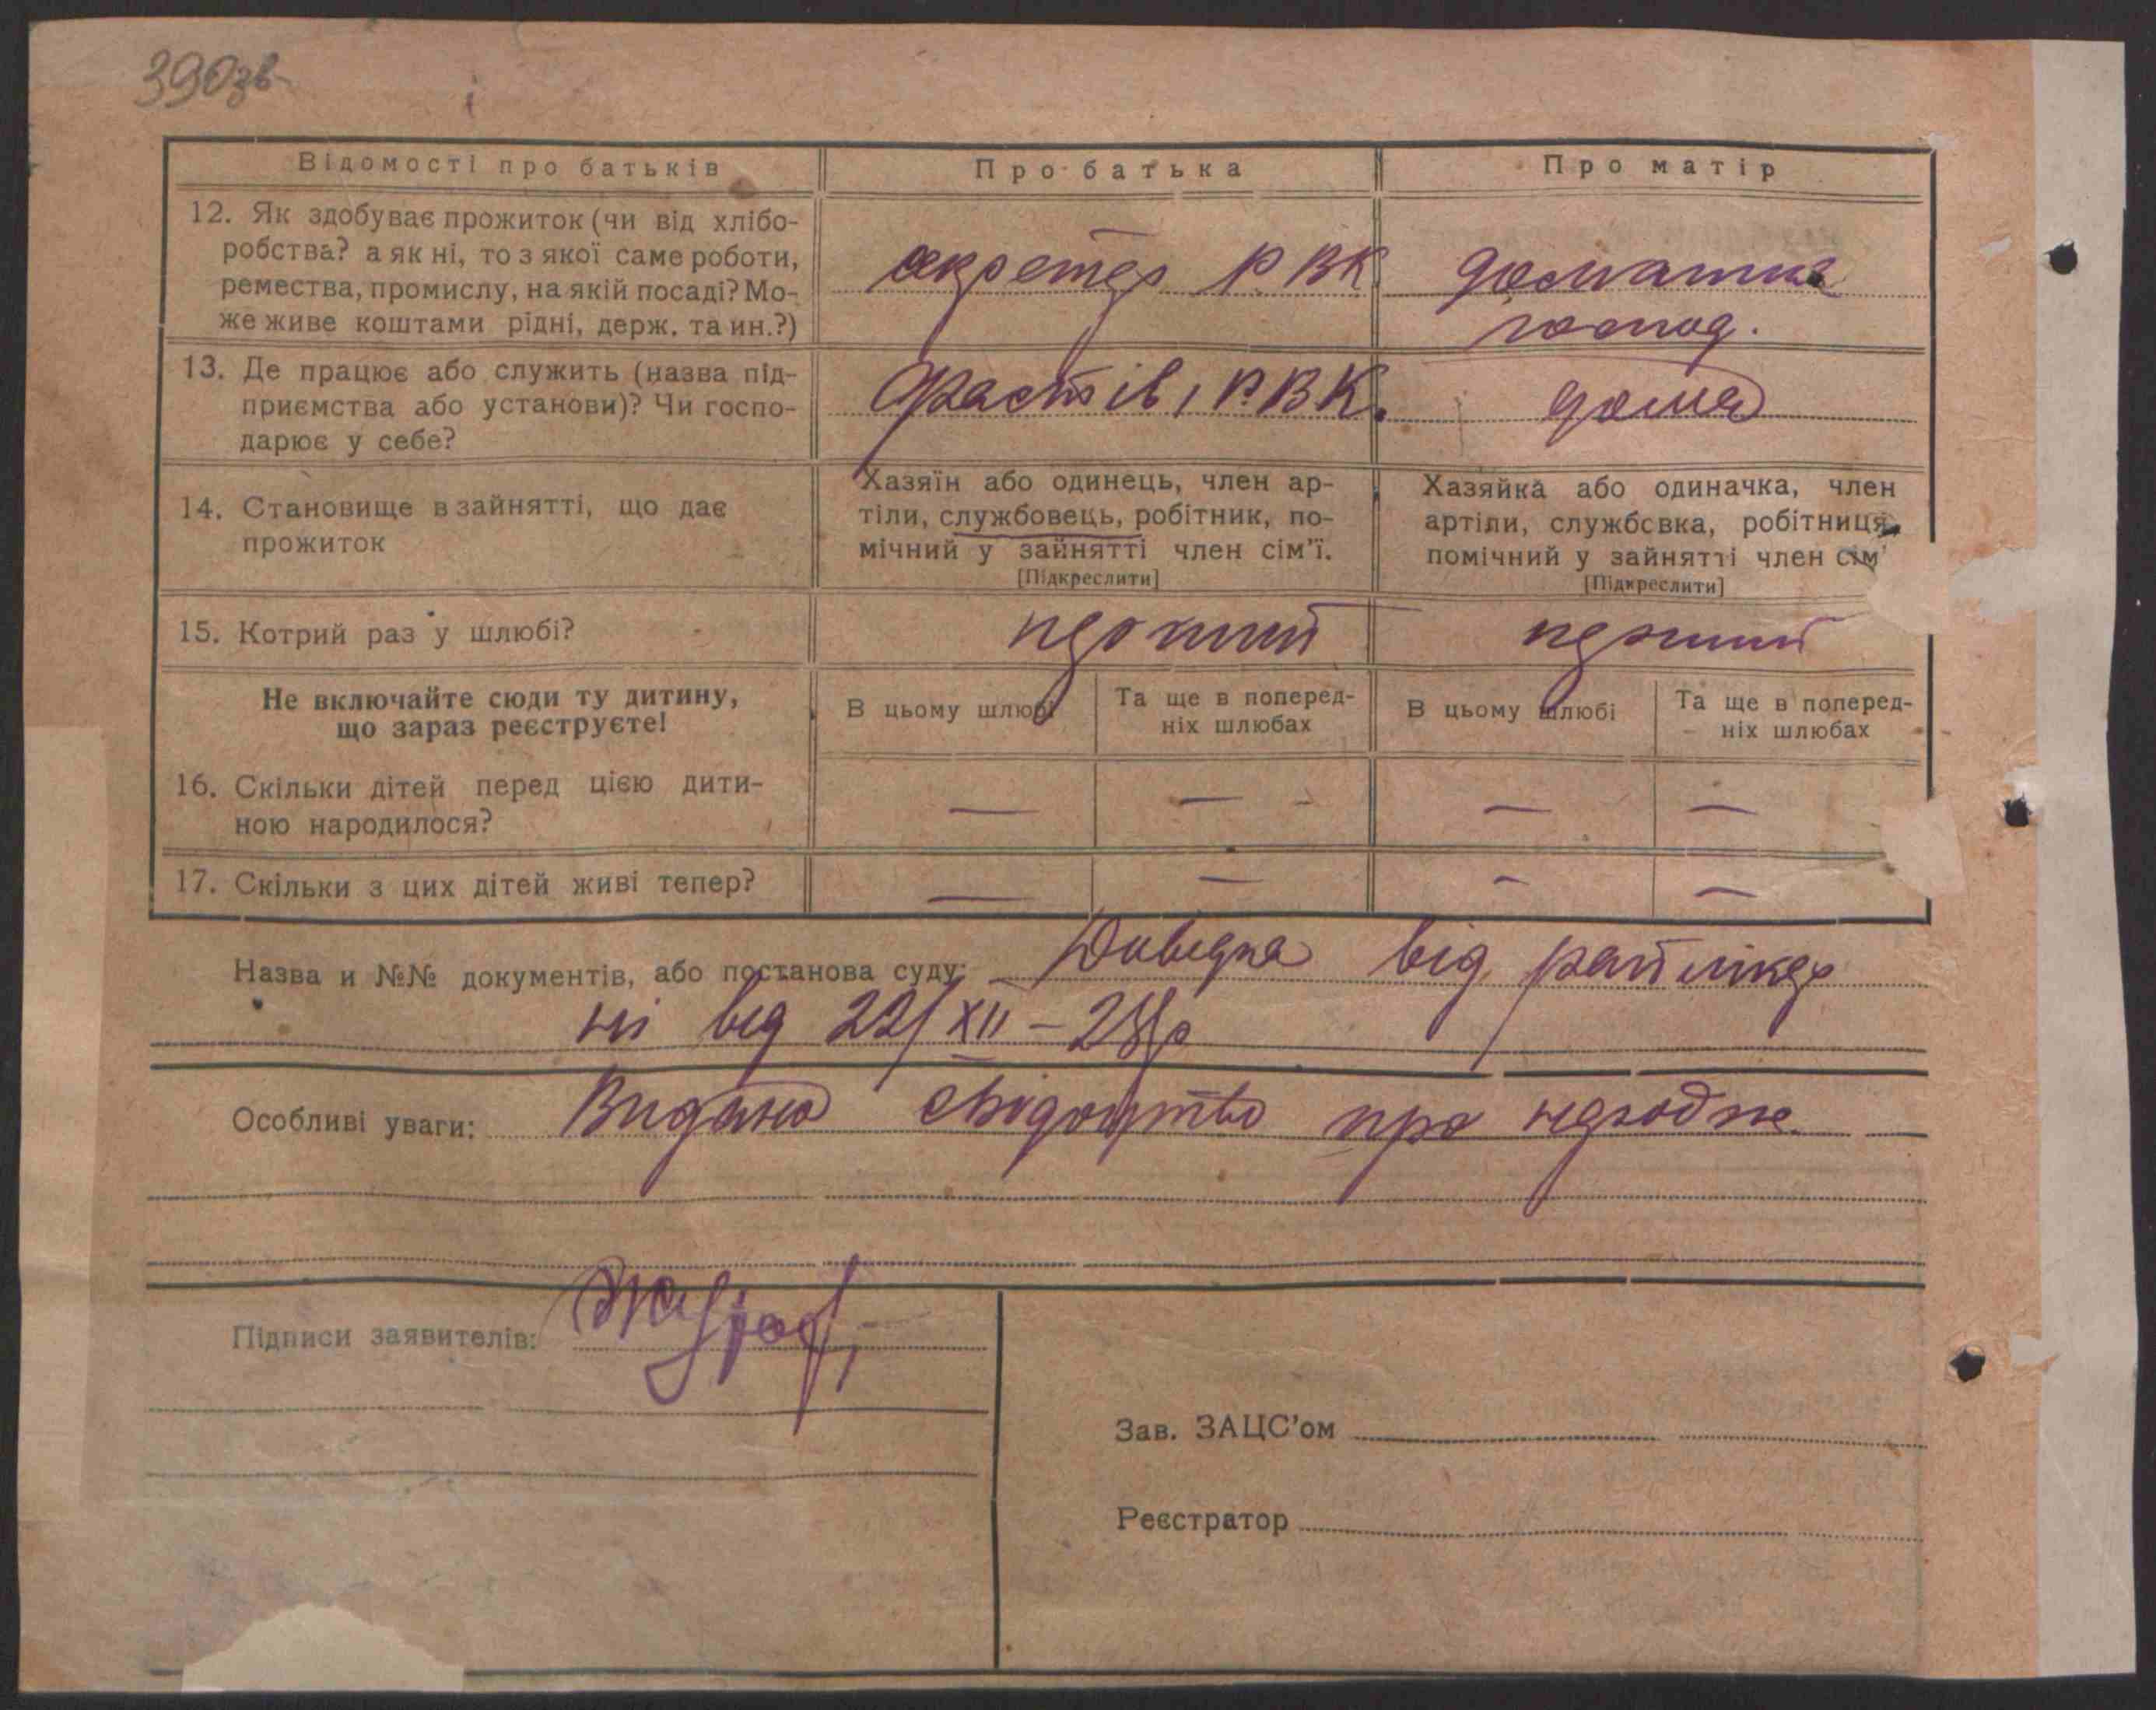 390зв
Відомості про батьків
Про батька
Про матір
12. Як здобуває прожиток (чи від хлібо-
робства? а як ні, то з якої саме роботи,
ремества, промислу, на якій посаді? Мо-
же живе коштами рідні, держ. та ин.?)
секретар РВК
домашня
господ.
13. Де працює або служить (назва під-
приємства або установи)? Чи госпо-
дарює у себе?
Фастів, Р.В.К.
дома
14. Становище в зайнятті, що дає
прожиток
Хазяїн або одинець, член ар-
тіли, службовець, робітник, по-
мічний у зайнятті член сім'ї.
[Підкреслити]
Хазяйка або одиначка, член
артіли, службовка, робітниця,
помічний у зайнятті член сім'
[Підкреслити]
15. Котрий раз у шлюбі?
перший
перший
Не включайте сюди ту дитину,
що зараз реєструєте!
В цьому шлюбі
Та ще в поперед-
ніх шлюбах
В цьому шлюбі
Та ще в поперед-
ніх шлюбах
16. Скільки дітей перед цією дити-
ною народилося?
— — — —
17. Скільки з цих дітей живі тепер?
— — — —
Назва и №№ документів, або постанова суду: Довідка від райлікар
ні від 22/XII – 28р
Особливі уваги: Видано свідоцтво про народже.
Підписи заявителів:
Зав. ЗАЦС'ом
Реєстратор